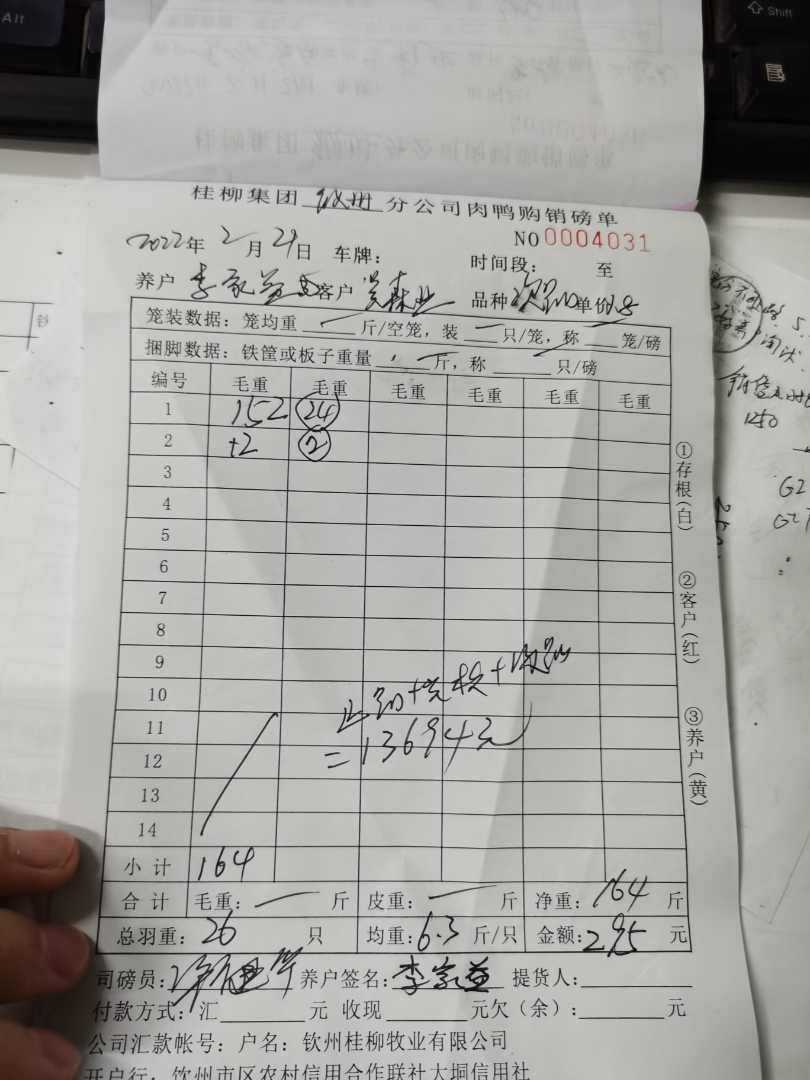 桂柳集团 钦州 分公司肉鸭购销磅单
NO 0004031
2022年 2月 21日 车牌： 时间段： 至
养户 李家益 客户 品种 单价1.8
笼装数据：笼均重 一 斤/空笼，装 一 只/笼，称 一 笼/磅
捆脚数据：铁筐或板子重量 一 斤，称 只/磅
编号 毛重 毛重 毛重 毛重 毛重 毛重
1 152 24
2 +2 2
3
4
5
6
7
8
9
10
11
=13694元
12
13
14
小计 164
合计 毛重：一 斤 皮重：一 斤 净重：164 斤
总羽重：26 只 均重：6.3 斤/只 金额：295 元
司磅员： 养户签名：李家益 提货人：
付款方式：汇 元 收现 元欠（余）： 元
公司汇款帐号：户名：钦州桂柳牧业有限公司
开户行：钦州市区农村信用合作联社大垌信用社
①存根(白)
②客户(红)
③养户(黄)
1250
Alt
Shift